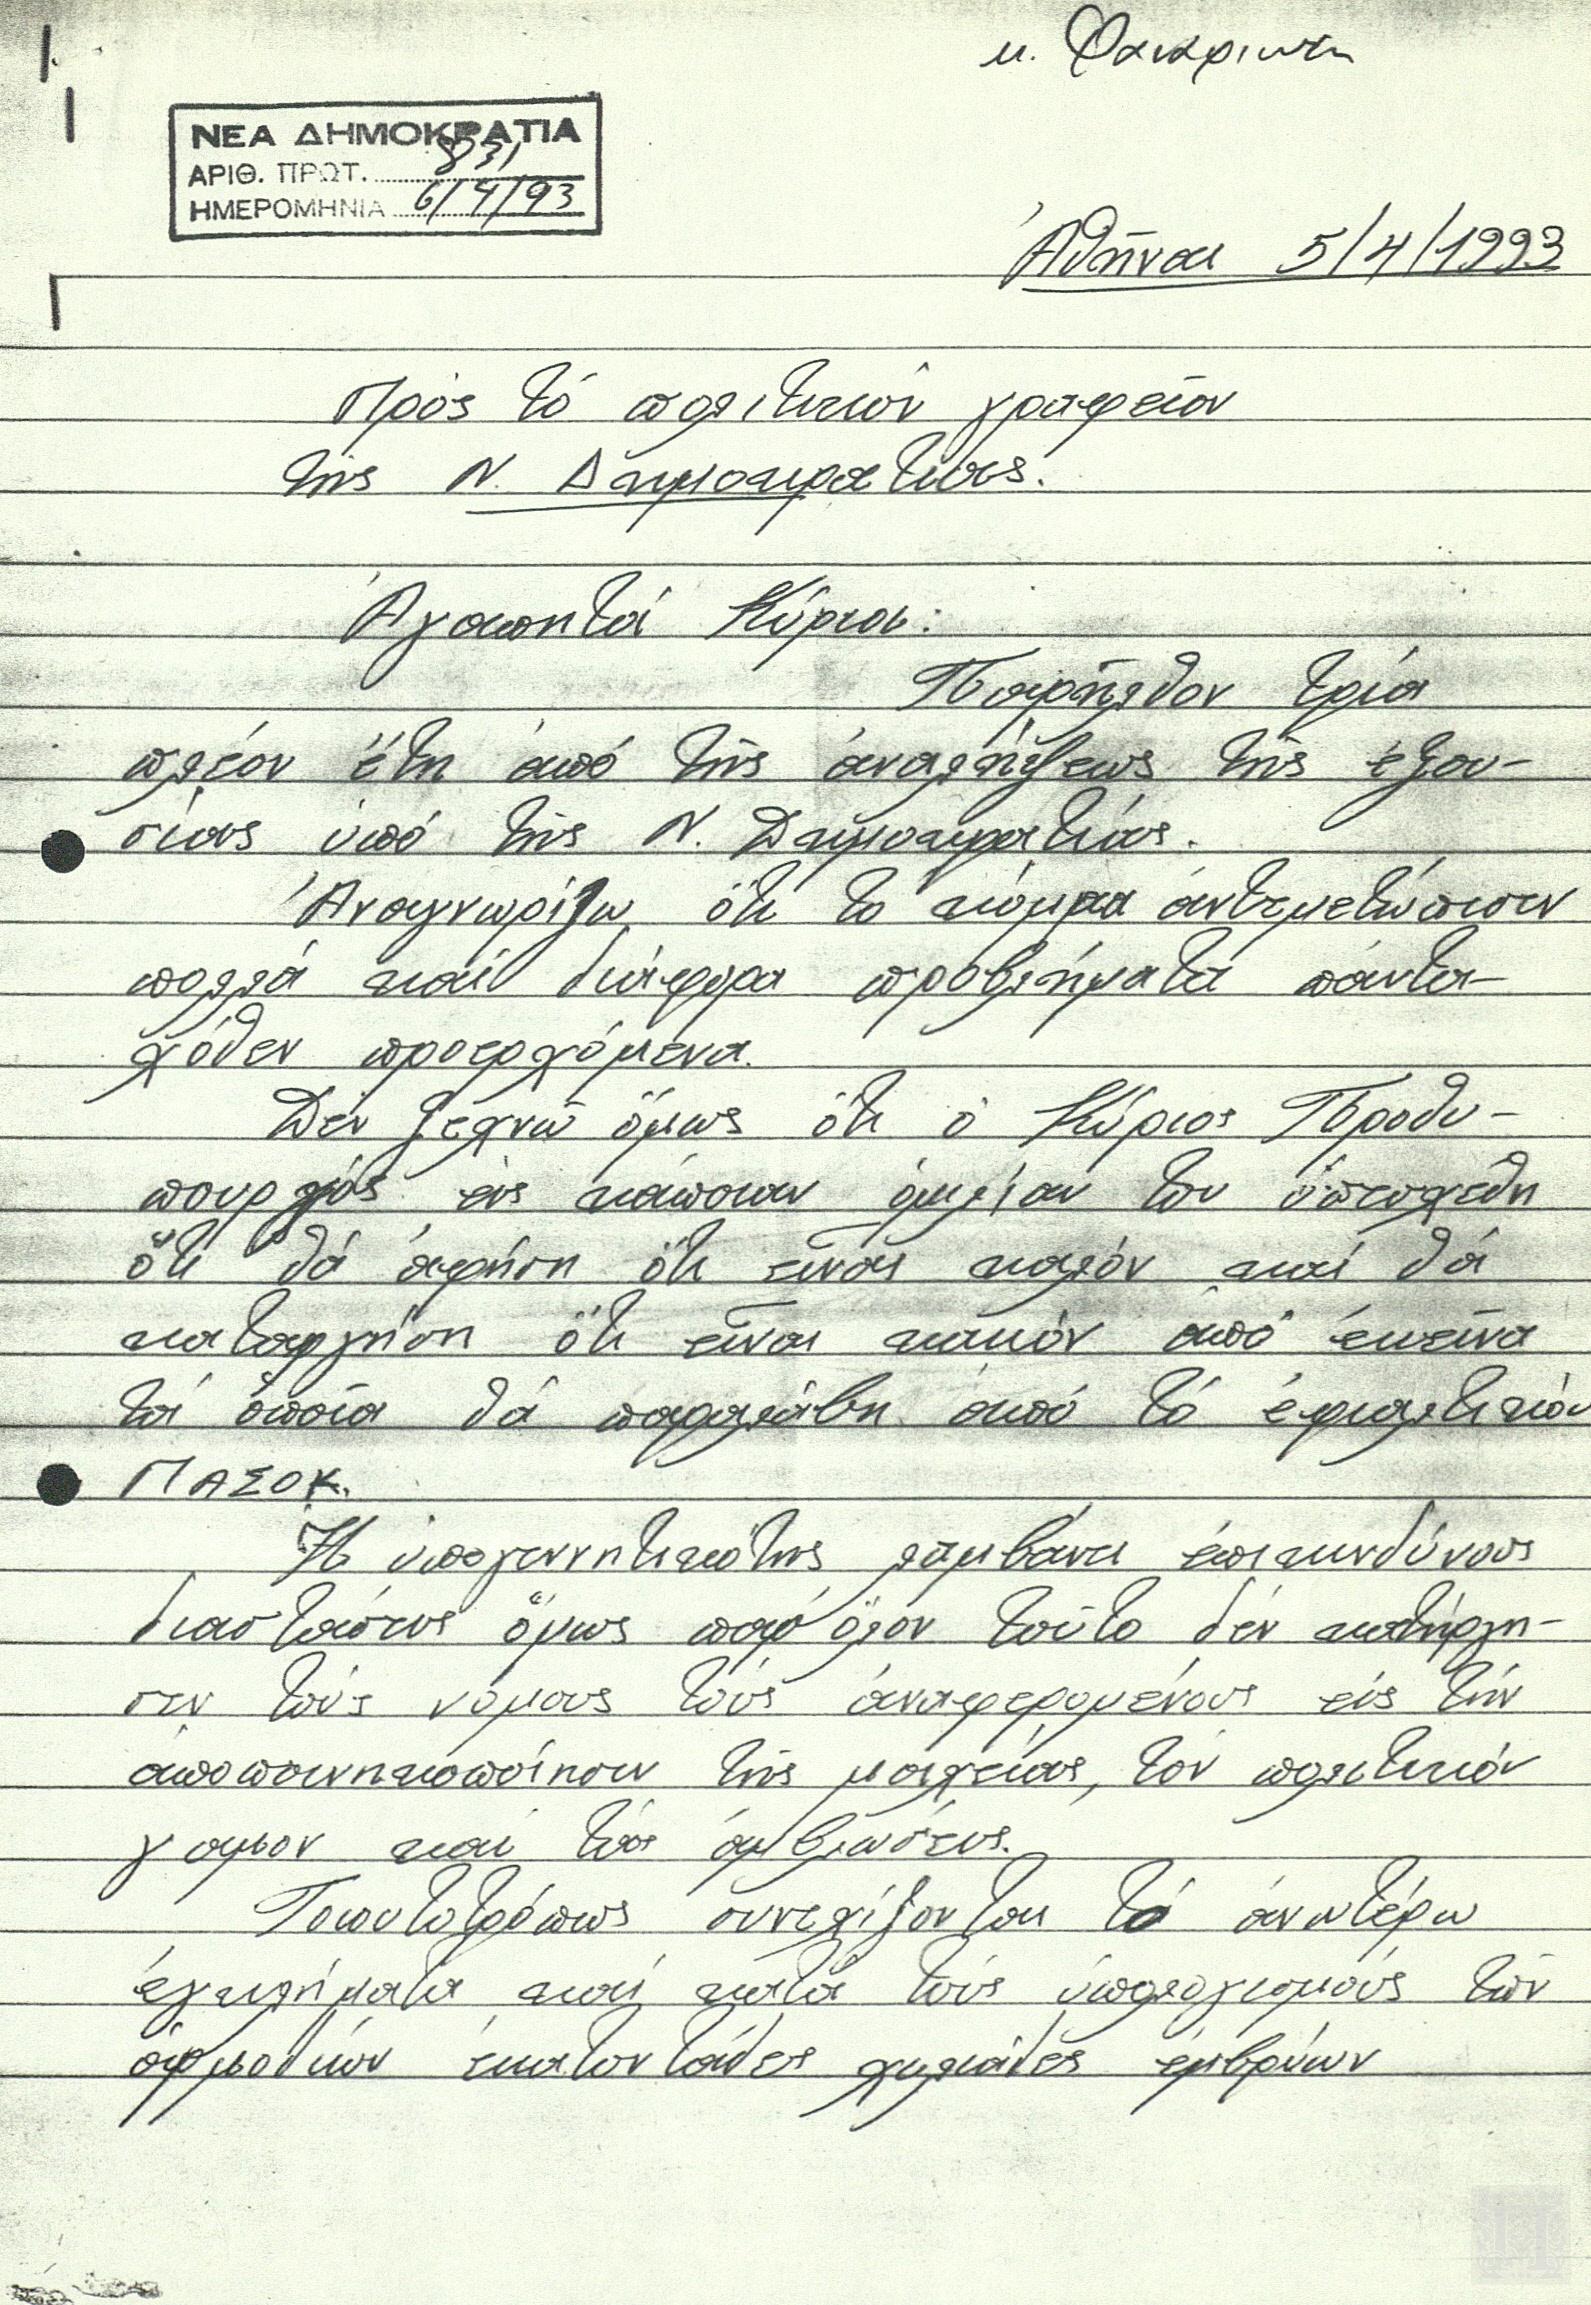 κ. Φαναριώτη
ΝΕΑ ΔΗΜΟΚΡΑΤΙΑ
ΑΡΙΘ. ΠΡΩΤ. 831
ΗΜΕΡΟΜΗΝΙΑ 6/4/93
Ἀθῆναι 5/4/1993
Πρός τό πολιτικόν γραφεῖον
τῆς Ν. Δημοκρατίας.
Ἀγαπητοί Κύριοι:
Παρῆλθον τρία
πλέον ἔτη ἀπό τῆς ἀναλήψεως τῆς ἐξου-
σίας ὑπό τῆς Ν. Δημοκρατίας.
Ἀναγνωρίζω ὅτι το κόμμα ἀντιμετώπισεν
πολλά καί διάφορα προβλήματα πάντα-
χόθεν προερχόμενα.
Δέν ξεχνῶ ὅμως ὅτι ὁ Κύριος Πρωθυ-
πουργός εἰς κάποιαν ὁμιλίαν του ὑπεσχέθη
ὅτι θά ἀφήση ὅτι εἶναι καλόν καί θά
καταργήση ὅτι εἶναι κακόν ἀπό ἐκεῖνα
τά ὁποῖα θά παραλάβη ἀπό τό ἐφιαλτικόν
ΠΑΣΟΚ.
Ἡ ὑπογεννητικότης λαμβάνει ἐπικινδύνους
διαστάσεις ὅμως παρ' ὅλον τοῦτο δέν κατήργη-
σεν τούς νόμους τούς ἀναφερομένους εἰς τήν
ἀποποινικοποίησιν τῆς μοιχείας, τόν πολιτικόν
γάμον καί τάς ἀμβλώσεις.
Τοιουτοτρόπως συνεχίζονται τά ἀνωτέρω
ἐγκλήματα καί κατά τούς ὑπολογισμούς τῶν
ἁρμοδίων ἑκατοντάδες χιλιάδες ἐμβρύων